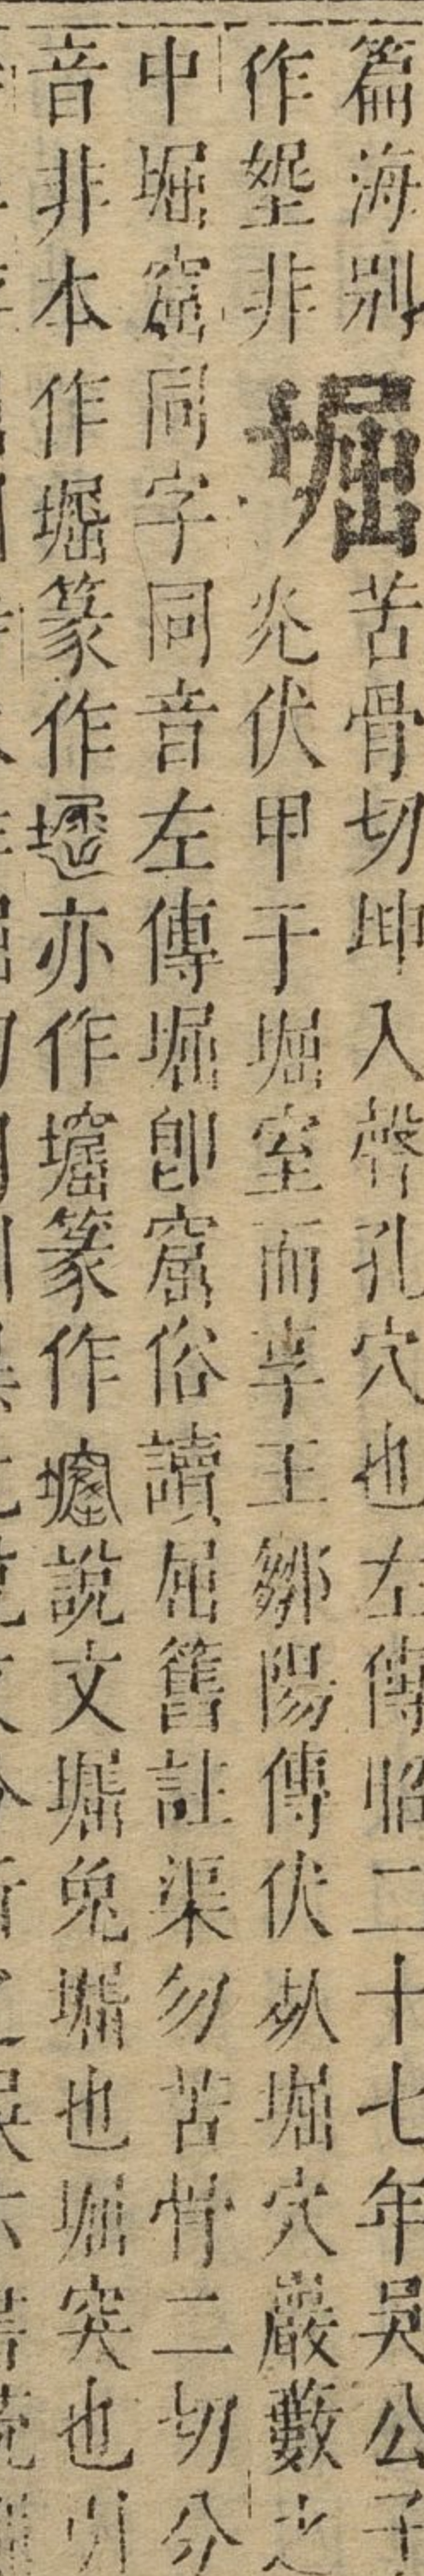 篇海别堀苦骨切坤入聲孔穴也左傳昭二十七年吳公子
作堲非光伏甲于堀室而享王鄒陽傳伏死堀穴巖藪之
中堀窟同字同音左傳堀卽窟俗讀屈舊註渠勿苦骨二切分
音非本作堀篆作亦作𡒁篆作說文堀兔堀也堀突也引